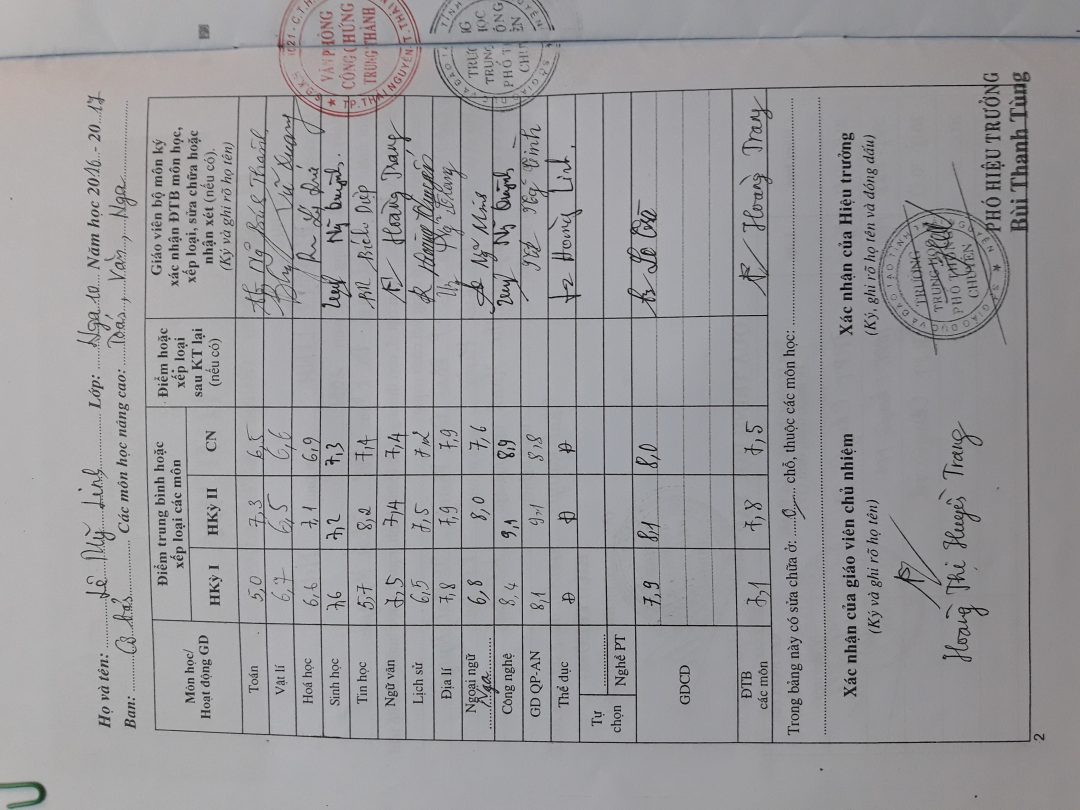 Họ và tên: Lê Mỹ Linh Lớp: Nga 10 Năm học 2016 - 2017
Ban: Cơ bản Các môn học nâng cao: Toán, Văn, Nga
Môn học/ Hoạt động GD
Điểm trung bình hoặc xếp loại các môn
Điểm hoặc xếp loại sau KT lại (nếu có)
Giáo viên bộ môn ký xác nhận ĐTB môn học, xếp loại, sửa chữa hoặc nhận xét (nếu có). (Ký và ghi rõ họ tên)
HKỳ I HKỳ II CN
Toán 5,0 7,3 6,5
Vật lí 6,7 6,5 6,6
Hoá học 6,6 7,1 6,9
Sinh học 7,6 7,2 7,3 Ng Quỳnh
Tin học 5,7 8,2 7,4 Bích Diệp
Ngữ văn 7,5 7,4 7,4 Hoàng Trang
Lịch sử 6,5 7,5 7,2
Địa lí 7,8 7,9 7,9
Ngoại ngữ Nga 6,8 8,0 7,6
Công nghệ 8,4 9,1 8,9 Ng Quỳnh
GD QP-AN 8,1 9,1 8,8
Thể dục Đ Đ Đ Hoàng Linh
Tự chọn
Nghề PT
GDCD 7,9 8,1 8,0
ĐTB các môn 7,1 7,8 7,5 Hoàng Trang
Trong bảng này có sửa chữa ở: 0 chỗ, thuộc các môn học:
Xác nhận của giáo viên chủ nhiệm
(Ký và ghi rõ họ tên)
Hoàng Thị Huyền Trang
Xác nhận của Hiệu trưởng
(Ký, ghi rõ họ tên và đóng dấu)
PHÓ HIỆU TRƯỞNG
Bùi Thanh Tùng
TRƯỜNG
TRUNG HỌC
PHỔ THÔNG
CHUYÊN
VĂN PHÒNG
CÔNG CHỨNG
TRUNG THÀNH
TP.THÁI NGUYÊN-T.THÁI
2